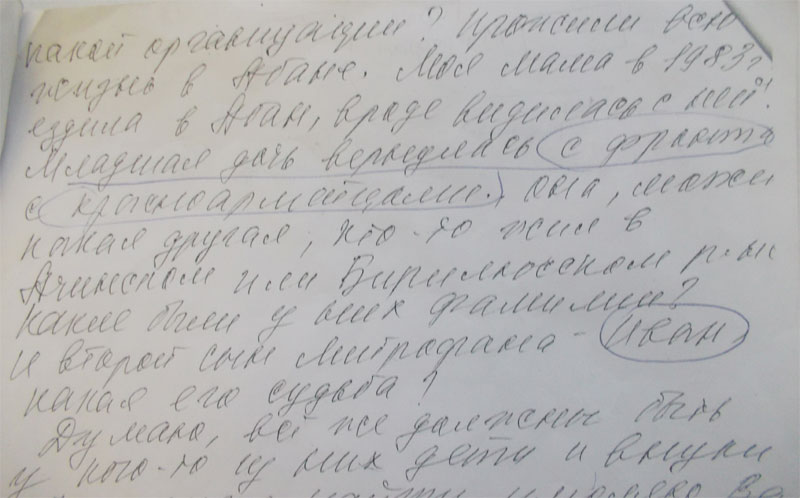 какой организации? Прожили всю
жизнь в Абане. Моя мама в 1983г
ездила в Абан, вроде виделась с ней.
Младшая дочь вернулась с фронта
с красноармейцами. она, может
какая другая, кто-то жил в
Ачинском или Бирилюсском р-ах
Какие были у них фамилии?
И второй сын Митрофана - Иван,
какая его судьба?
Думаю, всё же должны быть
у кого-то из них дети и внуки
найти